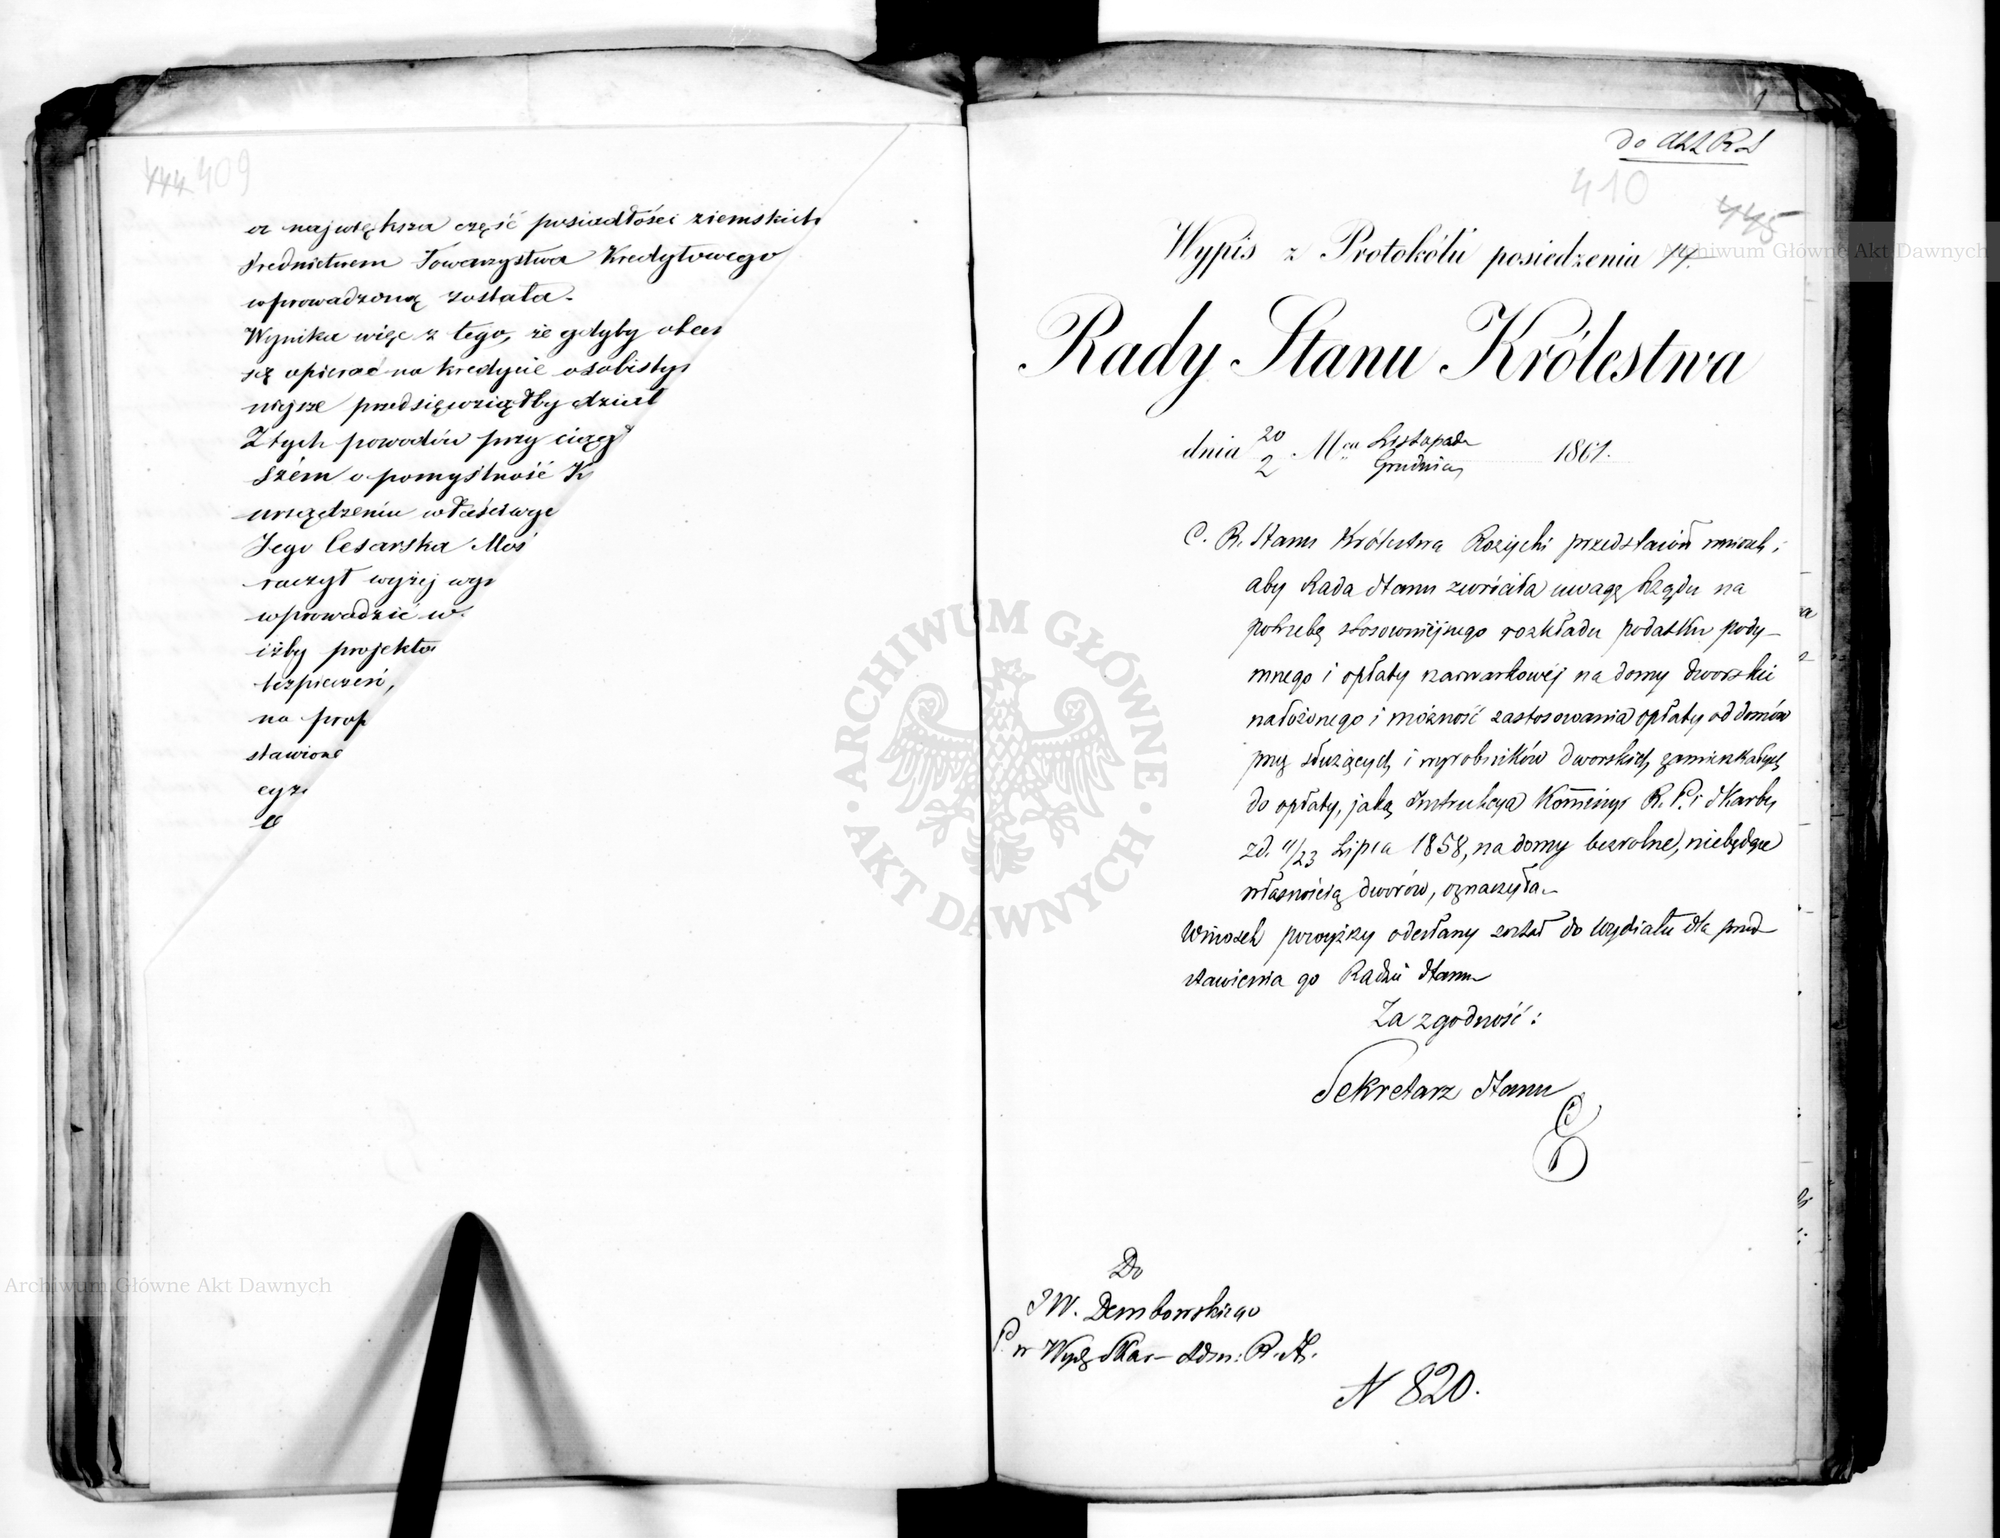 444 409
a największa część posiadłości ziemskich
średnictwem Towarzystwa Kredytowego
wprowadzoną została.
Wynika więc z tego, że gdyby obec
się opierać na kredycie osobistym
niejsze przedsięwziąłby dzieł
Z tych powodów przy ciągł
szém o pomyślność K
urządzeniu właściwego
Jego Cesarska Moś
raczył wyżej wyr
wprowadzić w
iżby projekto
bezpieczeń,
na prop
stawione
cyzi
1
do
410
445
Wypis z Protokółu posiedzenia 14.
Rady Stanu Królestwa
dnia 20/2 Mca Listopada/Grudnia 1861.
C. R. Stanu Królestwa Rożycki przedstawił wniosek;
aby Rada Stanu zwróciła uwagę Rządu na
potrzebę stosowniejszego rozkładu podatku pody-
mnego i opłaty szarwarkowéj na domy dworskie
nałożonego i możność zastosowania opłaty od domów
przez służących i wyrobników dworskich zamieszkałych
do opłaty, jaką Instrukcya Kommisyi R. P. i Skarbu
z d. 11/23 Lipca 1858, na domy bezrolne, niebędące
własnością dworów, oznaczyła.
Wniosek powyższy odesłany został do Wydziału dla przed-
stawienia go Radzie Stanu
Za zgodność:
Sekretarz Stanu
Do
JW. Dembowskiego
P. w Wydz. Skar- Adm: R. St.
N 820.
ARCHIWUM GŁÓWNE
AKT DAWNYCH
Archiwum Główne Akt Dawnych
Archiwum Główne Akt Dawnych